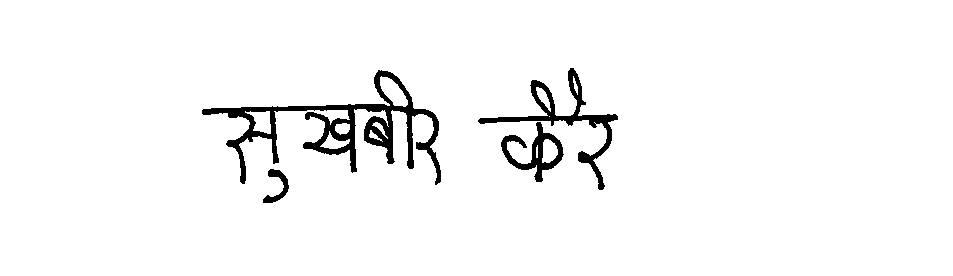 सुखबीर कैर